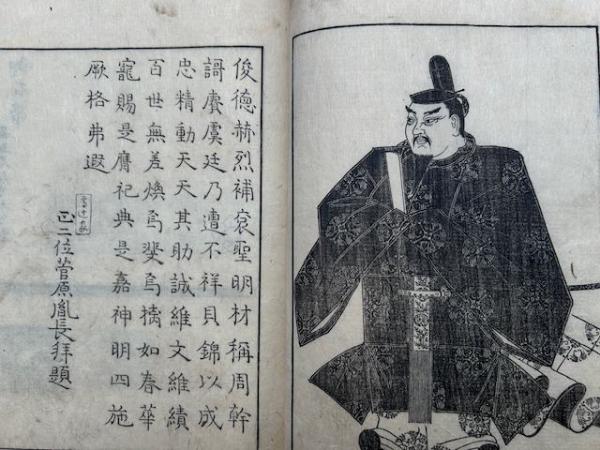 俊德赫烈補袞聖明材稱周幹
謌賡虞廷乃遭不祥貝錦以成
忠精動天天其助誠維文維績
百世無差煥焉斐焉摛如春華
寵賜是膺祀典是嘉神明四施
厥格弗遐
正二位菅原胤長拜題